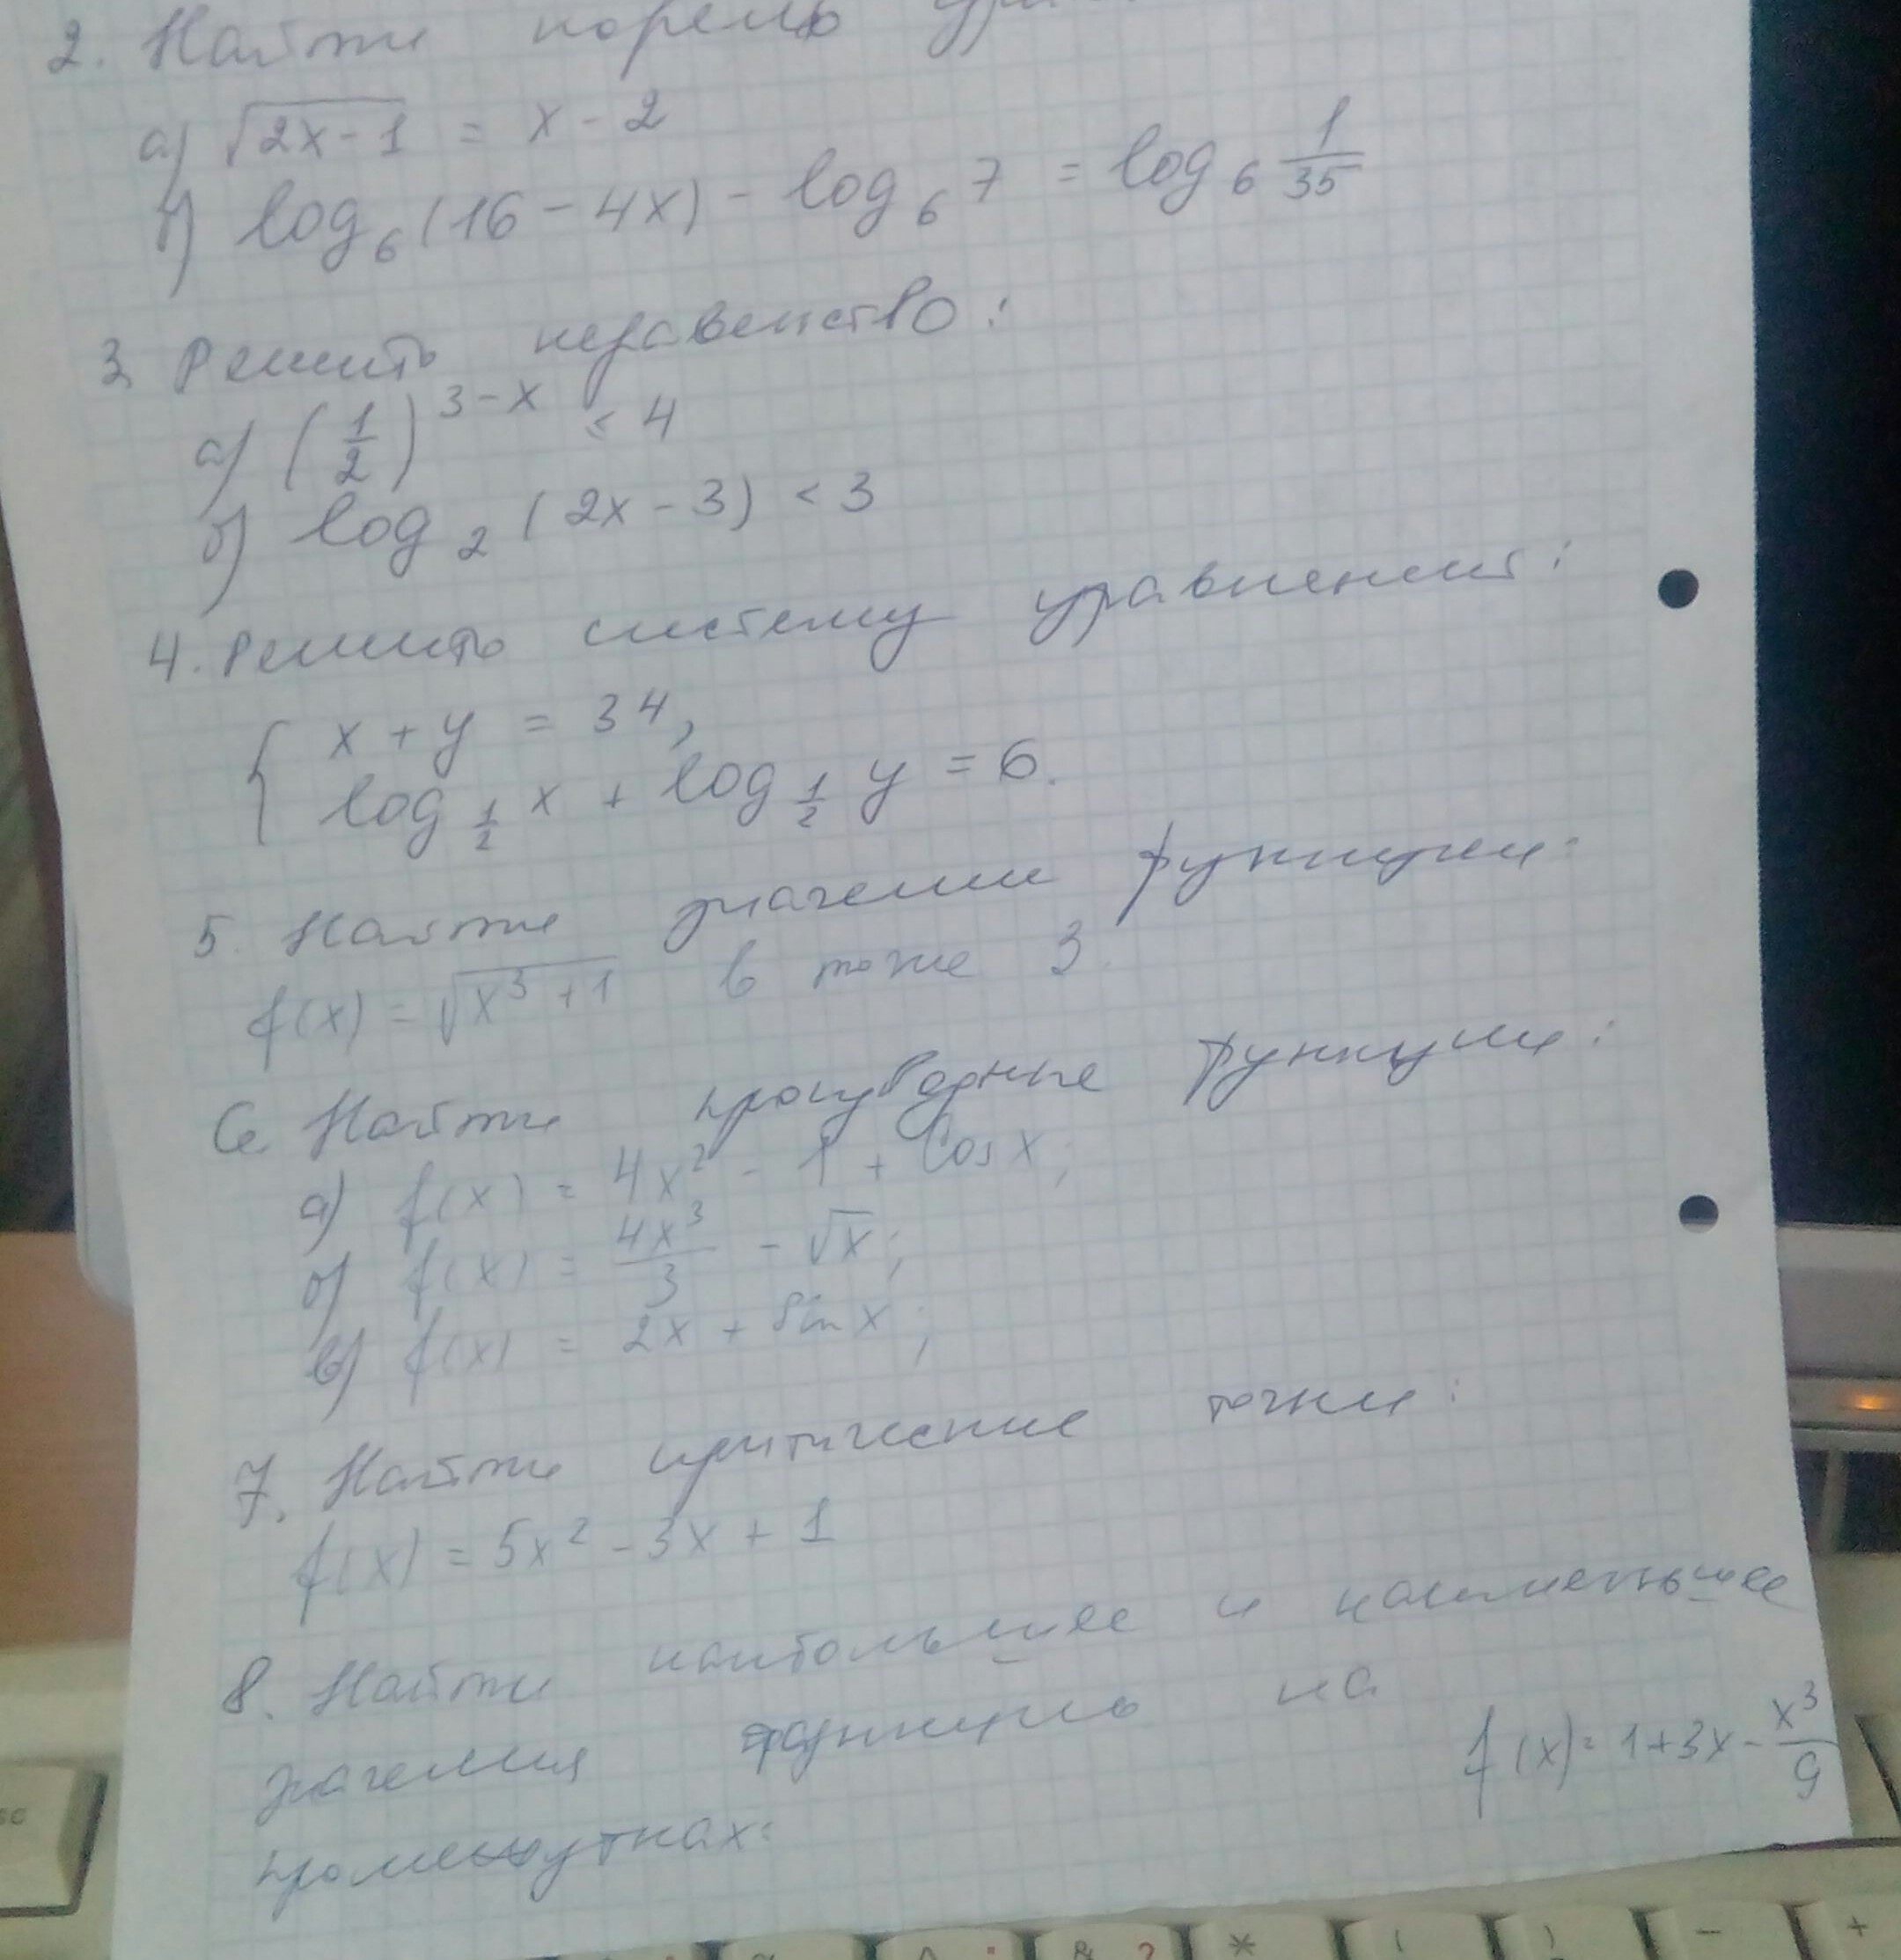 2. Найти корень
а) √(2x-1) = x - 2
б) log₆(16 - 4x) - log₆ 7 = log₆ 1/35
3 Решить неравенство:
а) (1/2)^(3-x) ≤ 4
б) log₂(2x - 3) < 3
4. Решить систему уравнений:
{ x + y = 34,
log_(1/2) x + log_(1/2) y = 6.
5. Найти значении функции:
f(x) = √(x³ + 1) в точке 3.
6. Найти производные функции:
а) f(x) = 4x² - 1 + cos x;
б) f(x) = 4x³/3 - √x;
в) f(x) = 2x + sin x;
7. Найти критические точки:
f(x) = 5x² - 3x + 1
8. Найти наибольшее и наименьшее
значения на
промежутках:
f(x) = 1 + 3x - x³/9